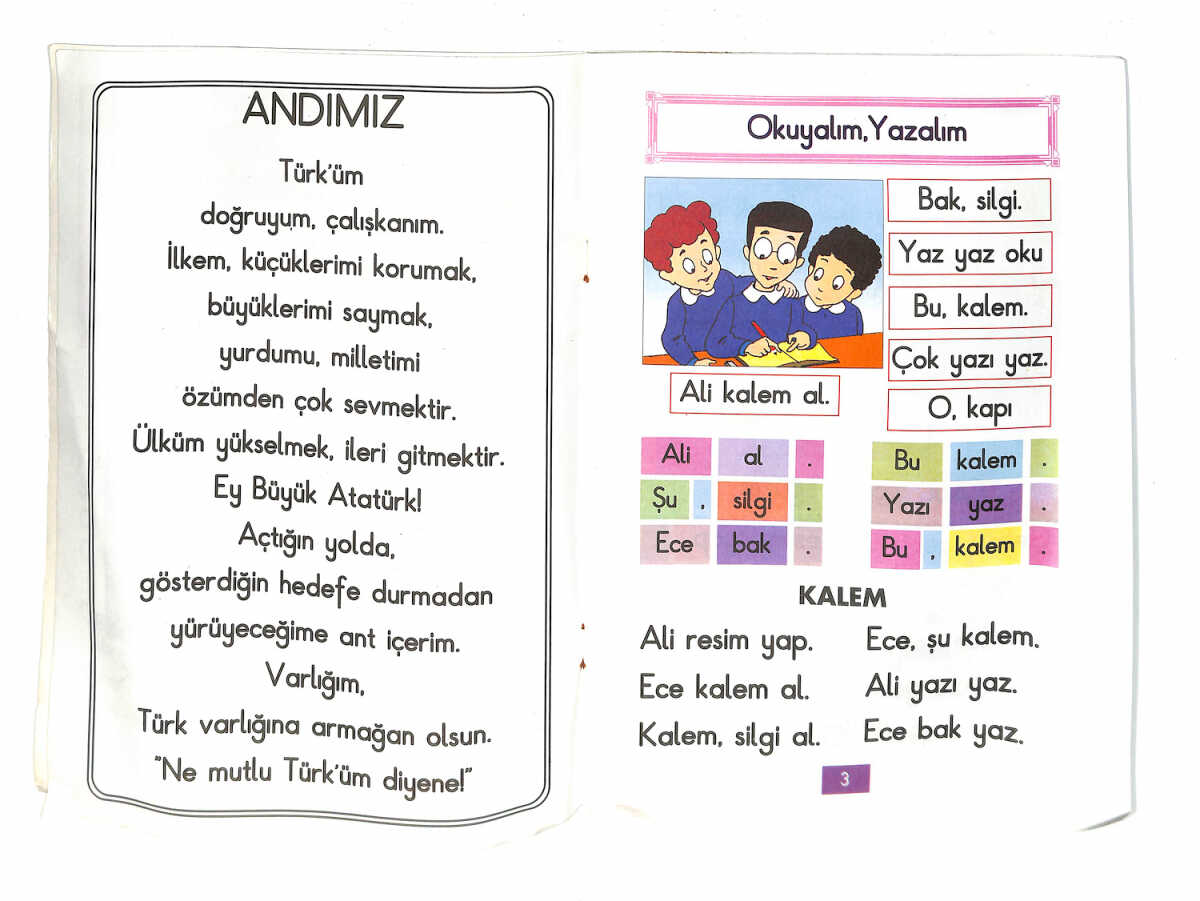 ANDIMIZ
Türk'üm
doğruyum, çalışkanım.
İlkem, küçüklerimi korumak,
büyüklerimi saymak,
yurdumu, milletimi
özümden çok sevmektir.
Ülküm yükselmek, ileri gitmektir.
Ey Büyük Atatürk!
Açtığın yolda,
gösterdiğin hedefe durmadan
yürüyeceğime ant içerim.
Varlığım,
Türk varlığına armağan olsun.
"Ne mutlu Türk'üm diyene!"
Okuyalım,Yazalım
Bak, silgi.
Yaz yaz oku
Bu, kalem.
Çok yazı yaz.
O, kapı
Ali kalem al.
Ali al .
Şu , silgi .
Ece bak .
Bu kalem .
Yazı yaz .
Bu , kalem .
KALEM
Ali resim yap.
Ece kalem al.
Kalem, silgi al.
Ece, şu kalem.
Ali yazı yaz.
Ece bak yaz.
3